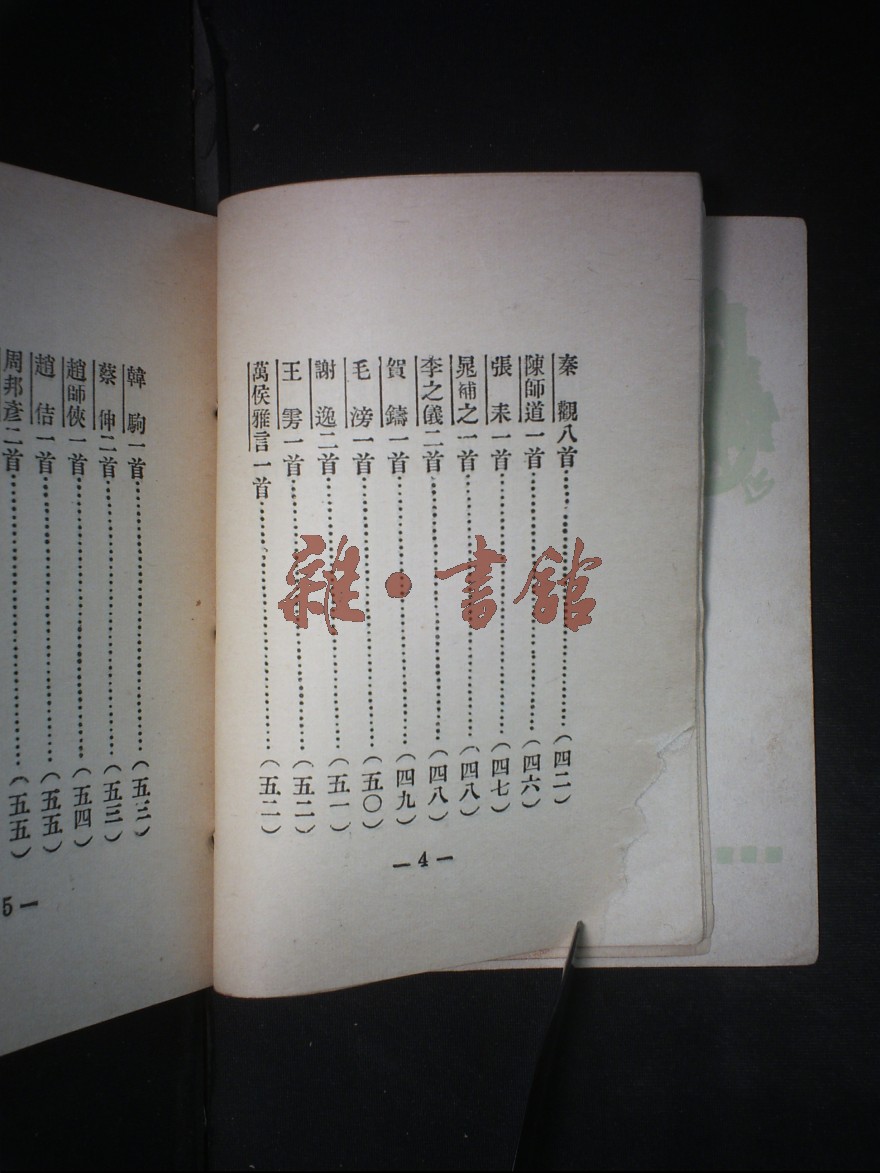 秦 觀八首……(四二)
陳師道一首……(四六)
張 耒一首……(四七)
晁補之一首……(四八)
李之儀二首……(四八)
賀 鑄一首……(四九)
毛 滂一首……(五〇)
謝 逸二首……(五一)
王 雱一首……(五二)
萬侯雅言一首……(五二)
—4—
韓 駒一首……(五三)
蔡 伸二首……(五三)
趙師俠一首……(五四)
趙 佶一首……(五五)
周邦彥二首……(五五)
5—
雜·書館